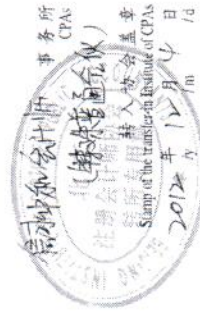 信永中和会计师 事务所
CPAs
(特殊普通合伙)
转入协会盖章
Stamp of the transfer-in Institute of CPAs
2012 年 12 月 4 日
/y /m /d